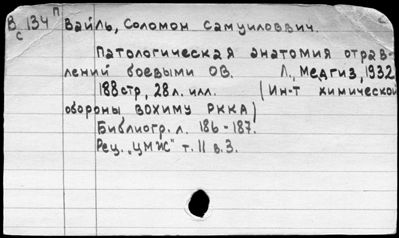 В 134 п Вайль, Соломон Самуиловвич.
с
Патологическая анатомия отрав-
лений боевыми ОВ. Л., Медгиз, 1932
188стр, 28л. илл. (Ин-т химической
обороны ВОХИМУ РККА)
Библиогр. л. 186-187.
Рец. „ЦМЖ" т. II в. 3.